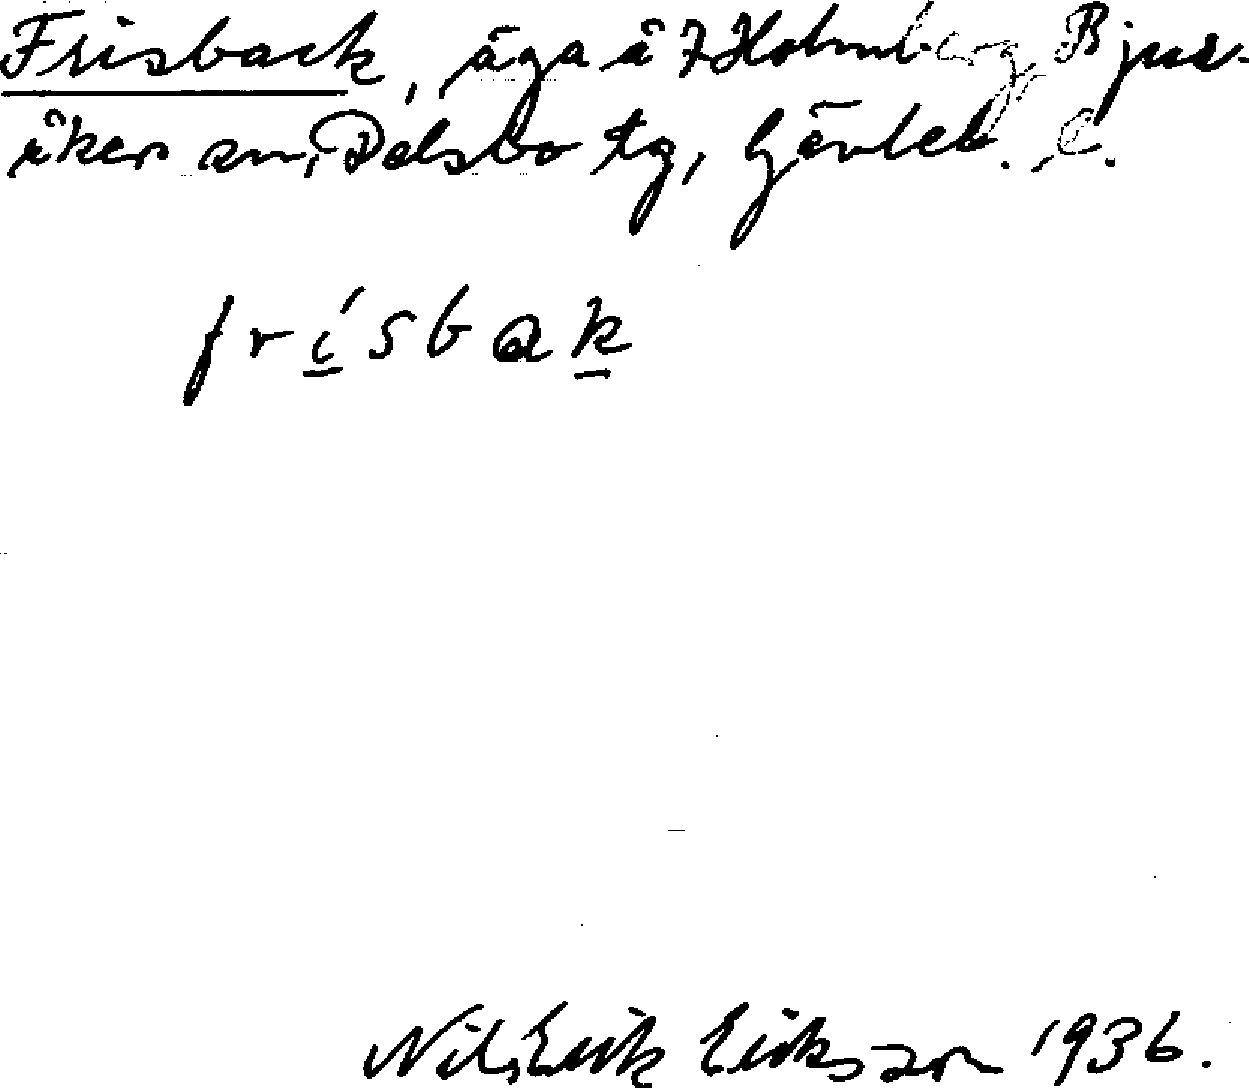 Frisback, äga å 7 Holmberg, Bjur-
åker sn, Delsbo tg, Gävleb. l.
frísbɑk
Nils Erik Eriksson 1936.